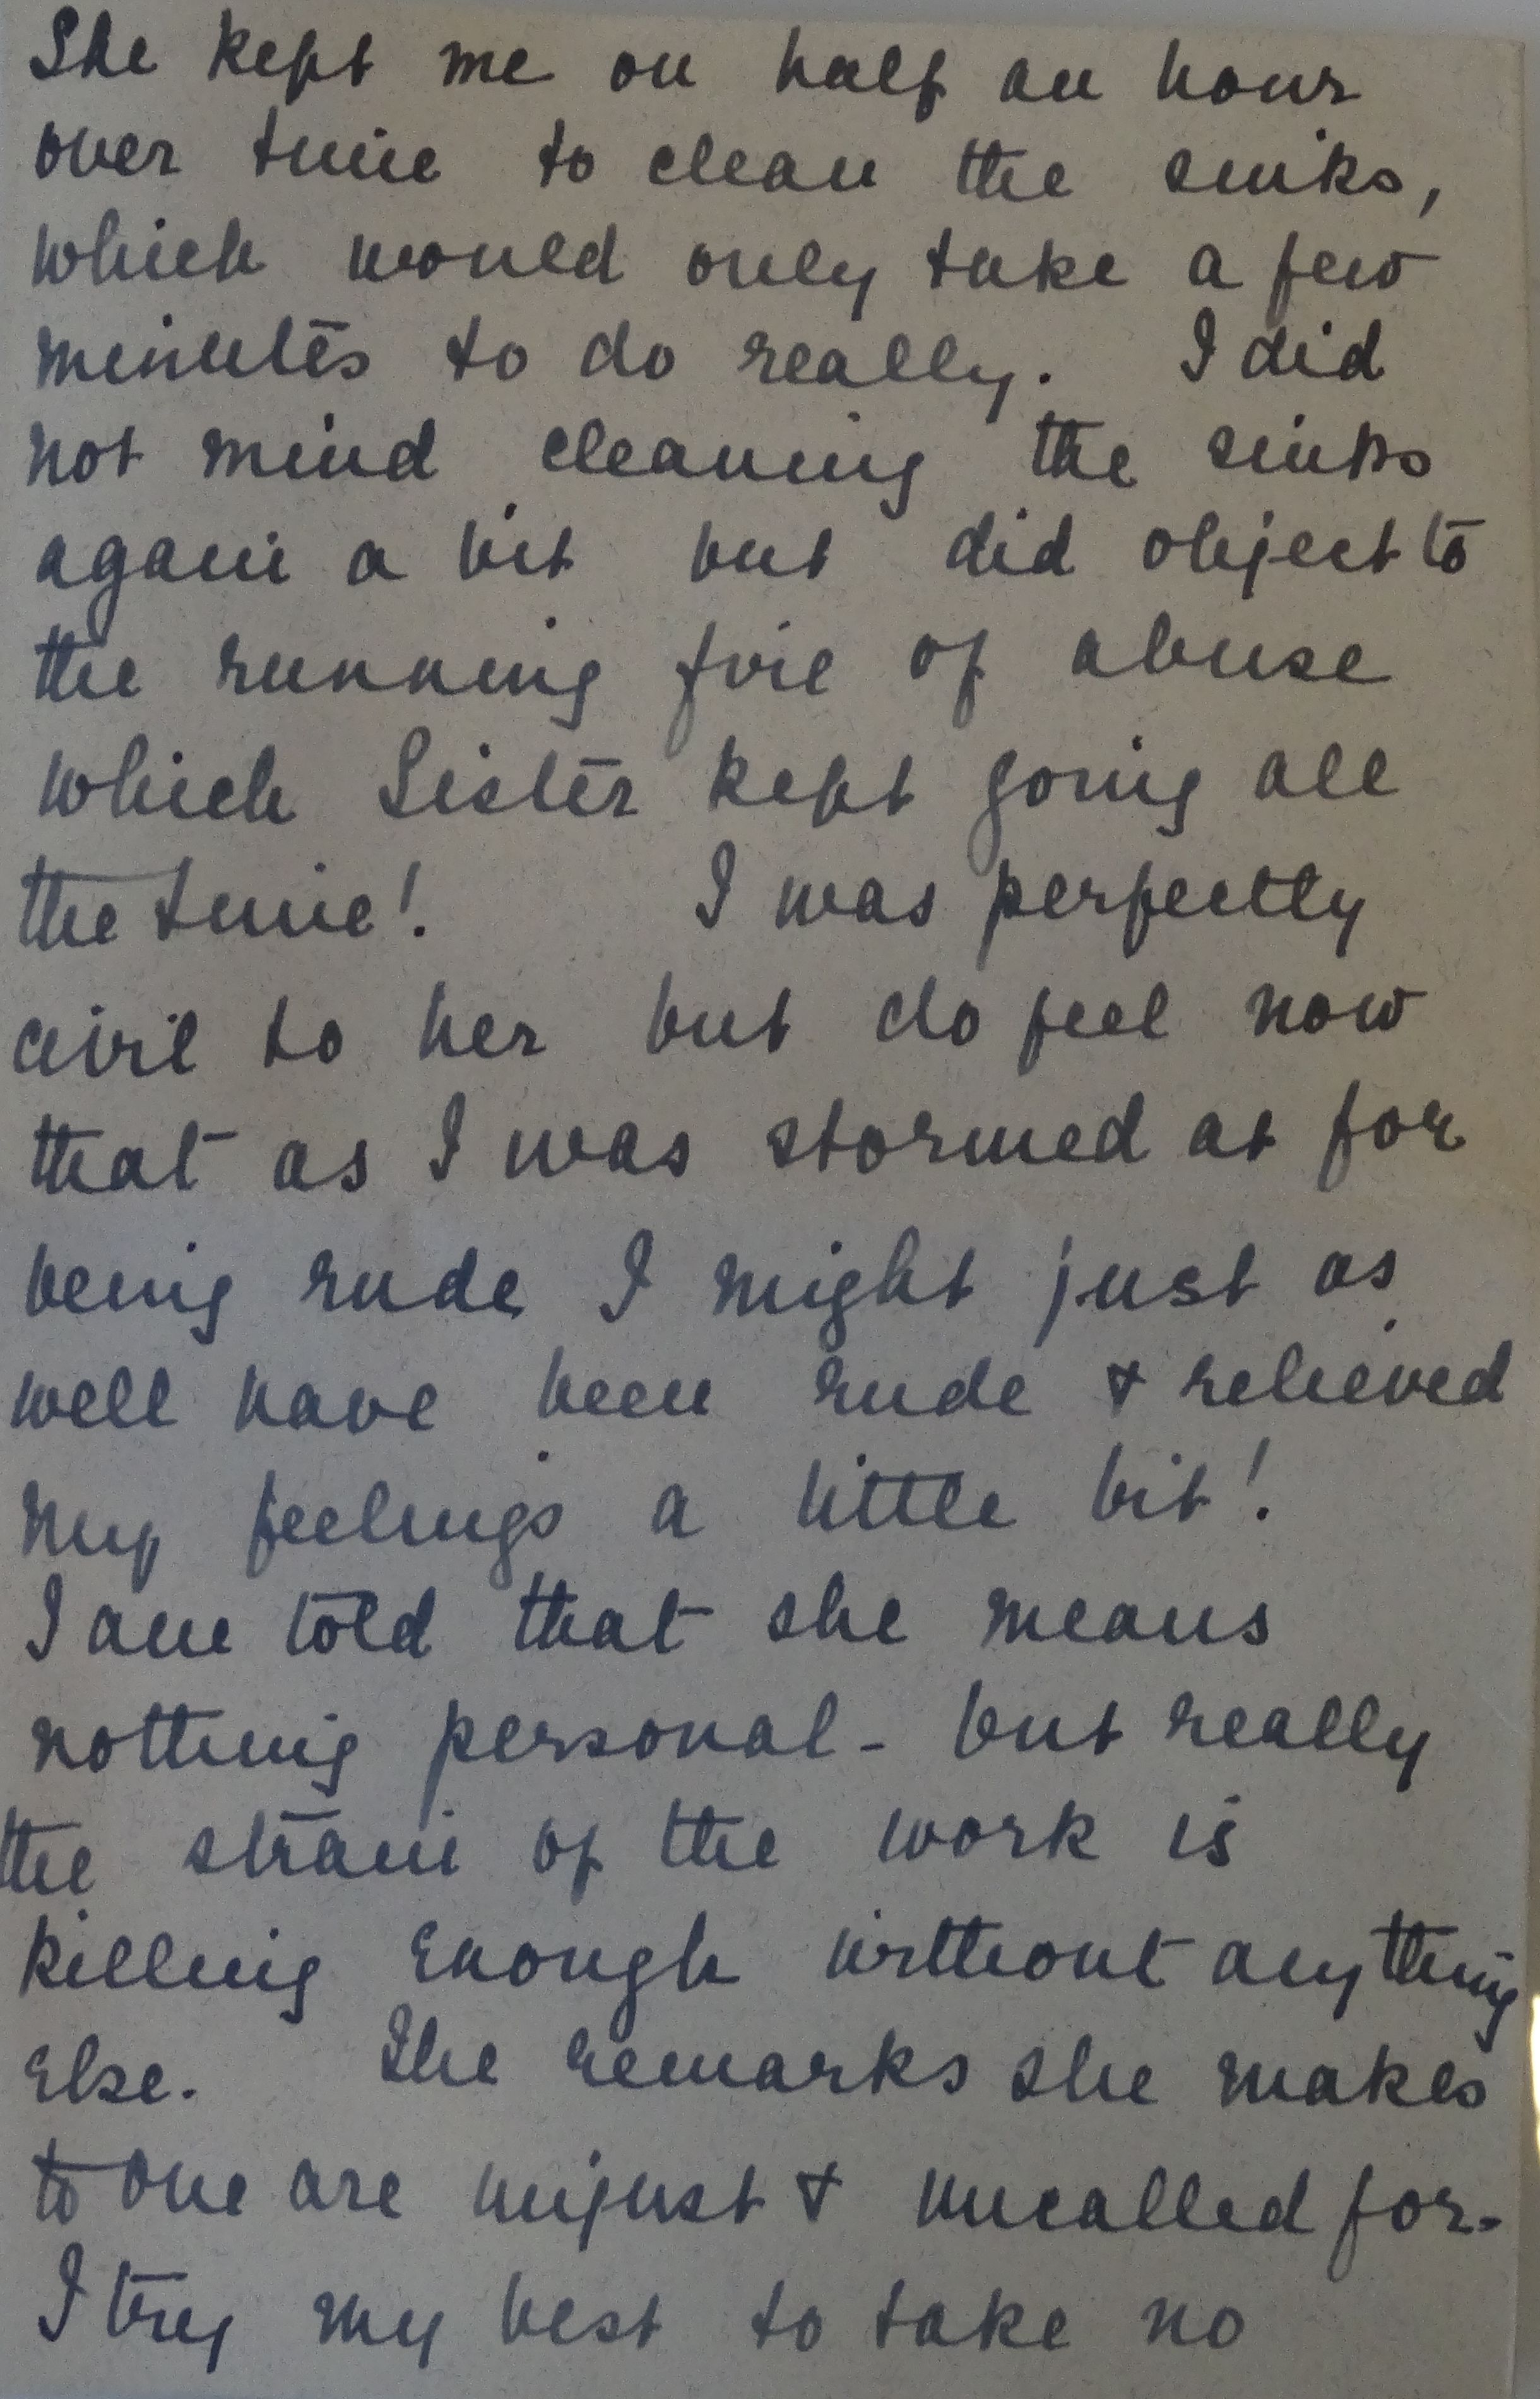 She kept me on half an hour
over time to clean the sinks,
which would only take a few
minutes to do really. I did
not mind cleaning the sinks
again a bit but did object to
the running fire of abuse
which Sister kept going all
the time! I was perfectly
civil to her but do feel now
that as I was stormed at for
being rude I might just as
well have been rude & relieved
my feelings a little bit!
I am told that she means
nothing personal - but really
the strain of the work is
killing enough without anything
else. The remarks she makes
to one are unjust & uncalled for.
I try my best to take no